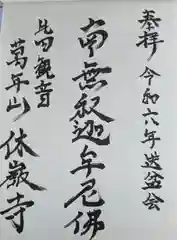 奉拝 令和六年盆会
南無釈迦牟尼佛
観音
萬年山 休巖寺